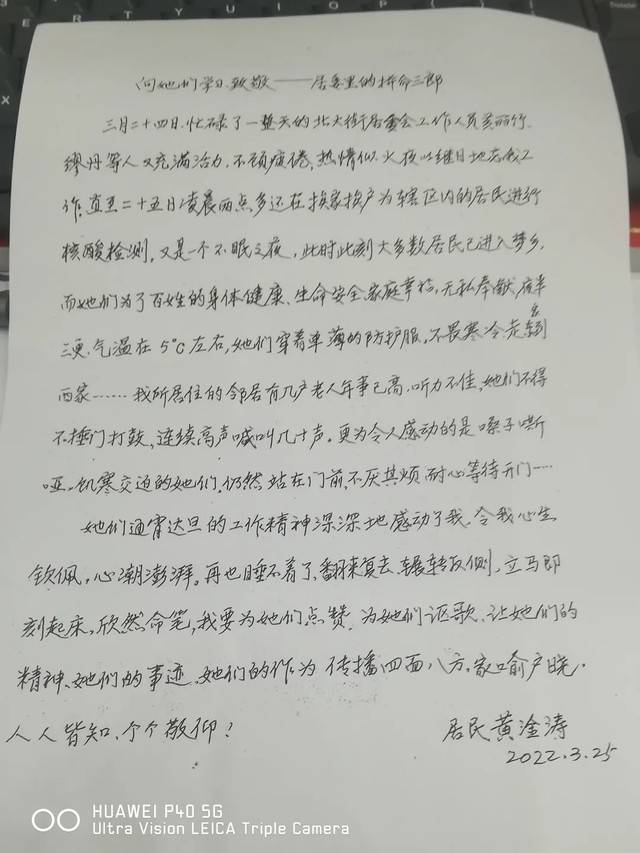 向她们学习、致敬——居委里的拼命三郎
三月二十四日，忙碌了一整天的北大街居委会工作人员吴丽行、
缪丹等人又充满活力，不顾疲倦，热情似火夜以继日地在战工
作，直至二十五日凌晨两点多还在挨家挨户为辖区内的居民进行
核酸检测，又是一个不眠之夜，此时此刻大多数居民已进入梦乡，
而她们为了百姓的身体健康、生命安全家庭幸福，无私奉献，夜半
三更，气温在5℃左右，她们穿着单薄的防护服，不畏寒冷，走东家到
西家……我所居住的邻居有几户老人年事已高，听力不佳，她们不得
不捶门打鼓，连续高声喊叫几十声。更为令人感动的是嗓子嘶
哑、饥寒交迫的她们，仍然站在门前，不厌其烦耐心等待开门……
她们通宵达旦的工作精神深深地感动了我，令我心生
钦佩，心潮澎湃。再也睡不着了，翻来复去、辗转反侧，立马即
刻起床，欣然命笔，我要为她们点赞，为她们讴歌，让她们的
精神、她们的事迹、她们的作为传播四面八方，家喻户晓，
人人皆知、个个敬仰！
居民黄淦涛
2022.3.25
HUAWEI P40 5G
Ultra Vision LEICA Triple Camera